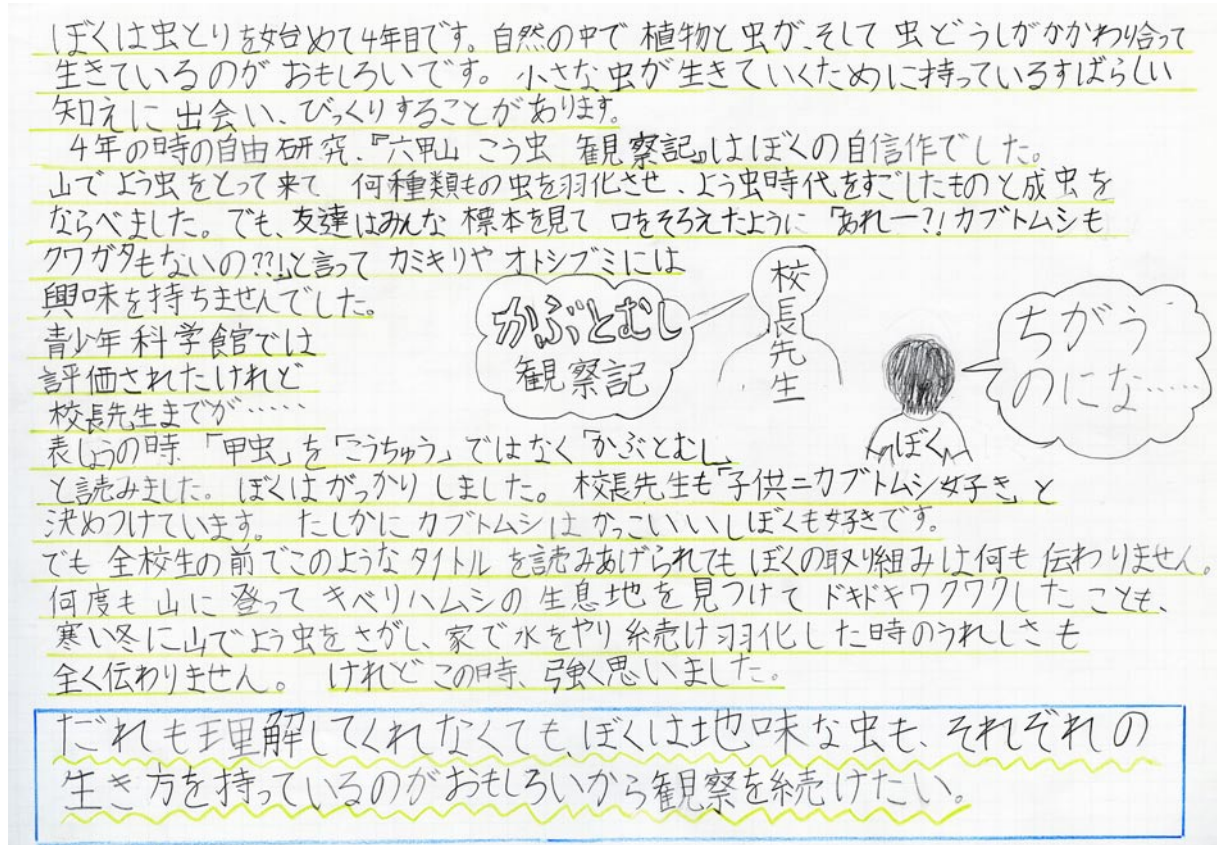 ぼくは虫とりを始めて4年目です。自然の中で植物と虫が、そして虫どうしがかかわり合って
生きているのがおもしろいです。小さな虫が生きていくために持っているすばらしい
知えに出会い、びっくりすることがあります。
4年の時の自由研究、『六甲山 こう虫 観察記』はぼくの自信作でした。
山でよう虫をとって来て 何種類もの虫を羽化させ、よう虫時代をすごしたものと成虫を
ならべました。でも、友達はみんな標本を見て口をそろえたように「あれー?!カブトムシも
クワガタもないの??」と言ってカミキリやオトシブミには
興味を持ちませんでした。
青少年科学館では
評価されたけれど
校長先生までが……
表しょうの時「甲虫」を「こうちゅう」ではなく「かぶとむし」
と読みました。ぼくはがっかりしました。校長先生も「子供=カブトムシ好き」と
決めつけています。たしかにカブトムシはかっこいいしぼくも好きです。
でも全校生の前でこのようなタイトルを読みあげられてもぼくの取り組みは何も伝わりません。
何度も山に登ってキベリハムシの生息地を見つけてドキドキワクワクしたことも、
寒い冬に山でよう虫をさがし、家で水をやり続け羽化した時のうれしさも
全く伝わりません。けれどこの時、強く思いました。
だれも理解してくれなくても、ぼくは地味な虫も、それぞれの
生き方を持っているのがおもしろいから観察を続けたい。
かぶとむし
観察記
校長先生
ぼく
ちがう
のにな……